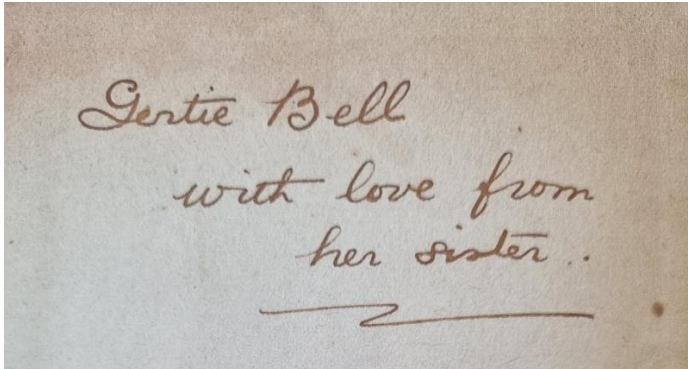 Gertie Bell
with love from
her sister..